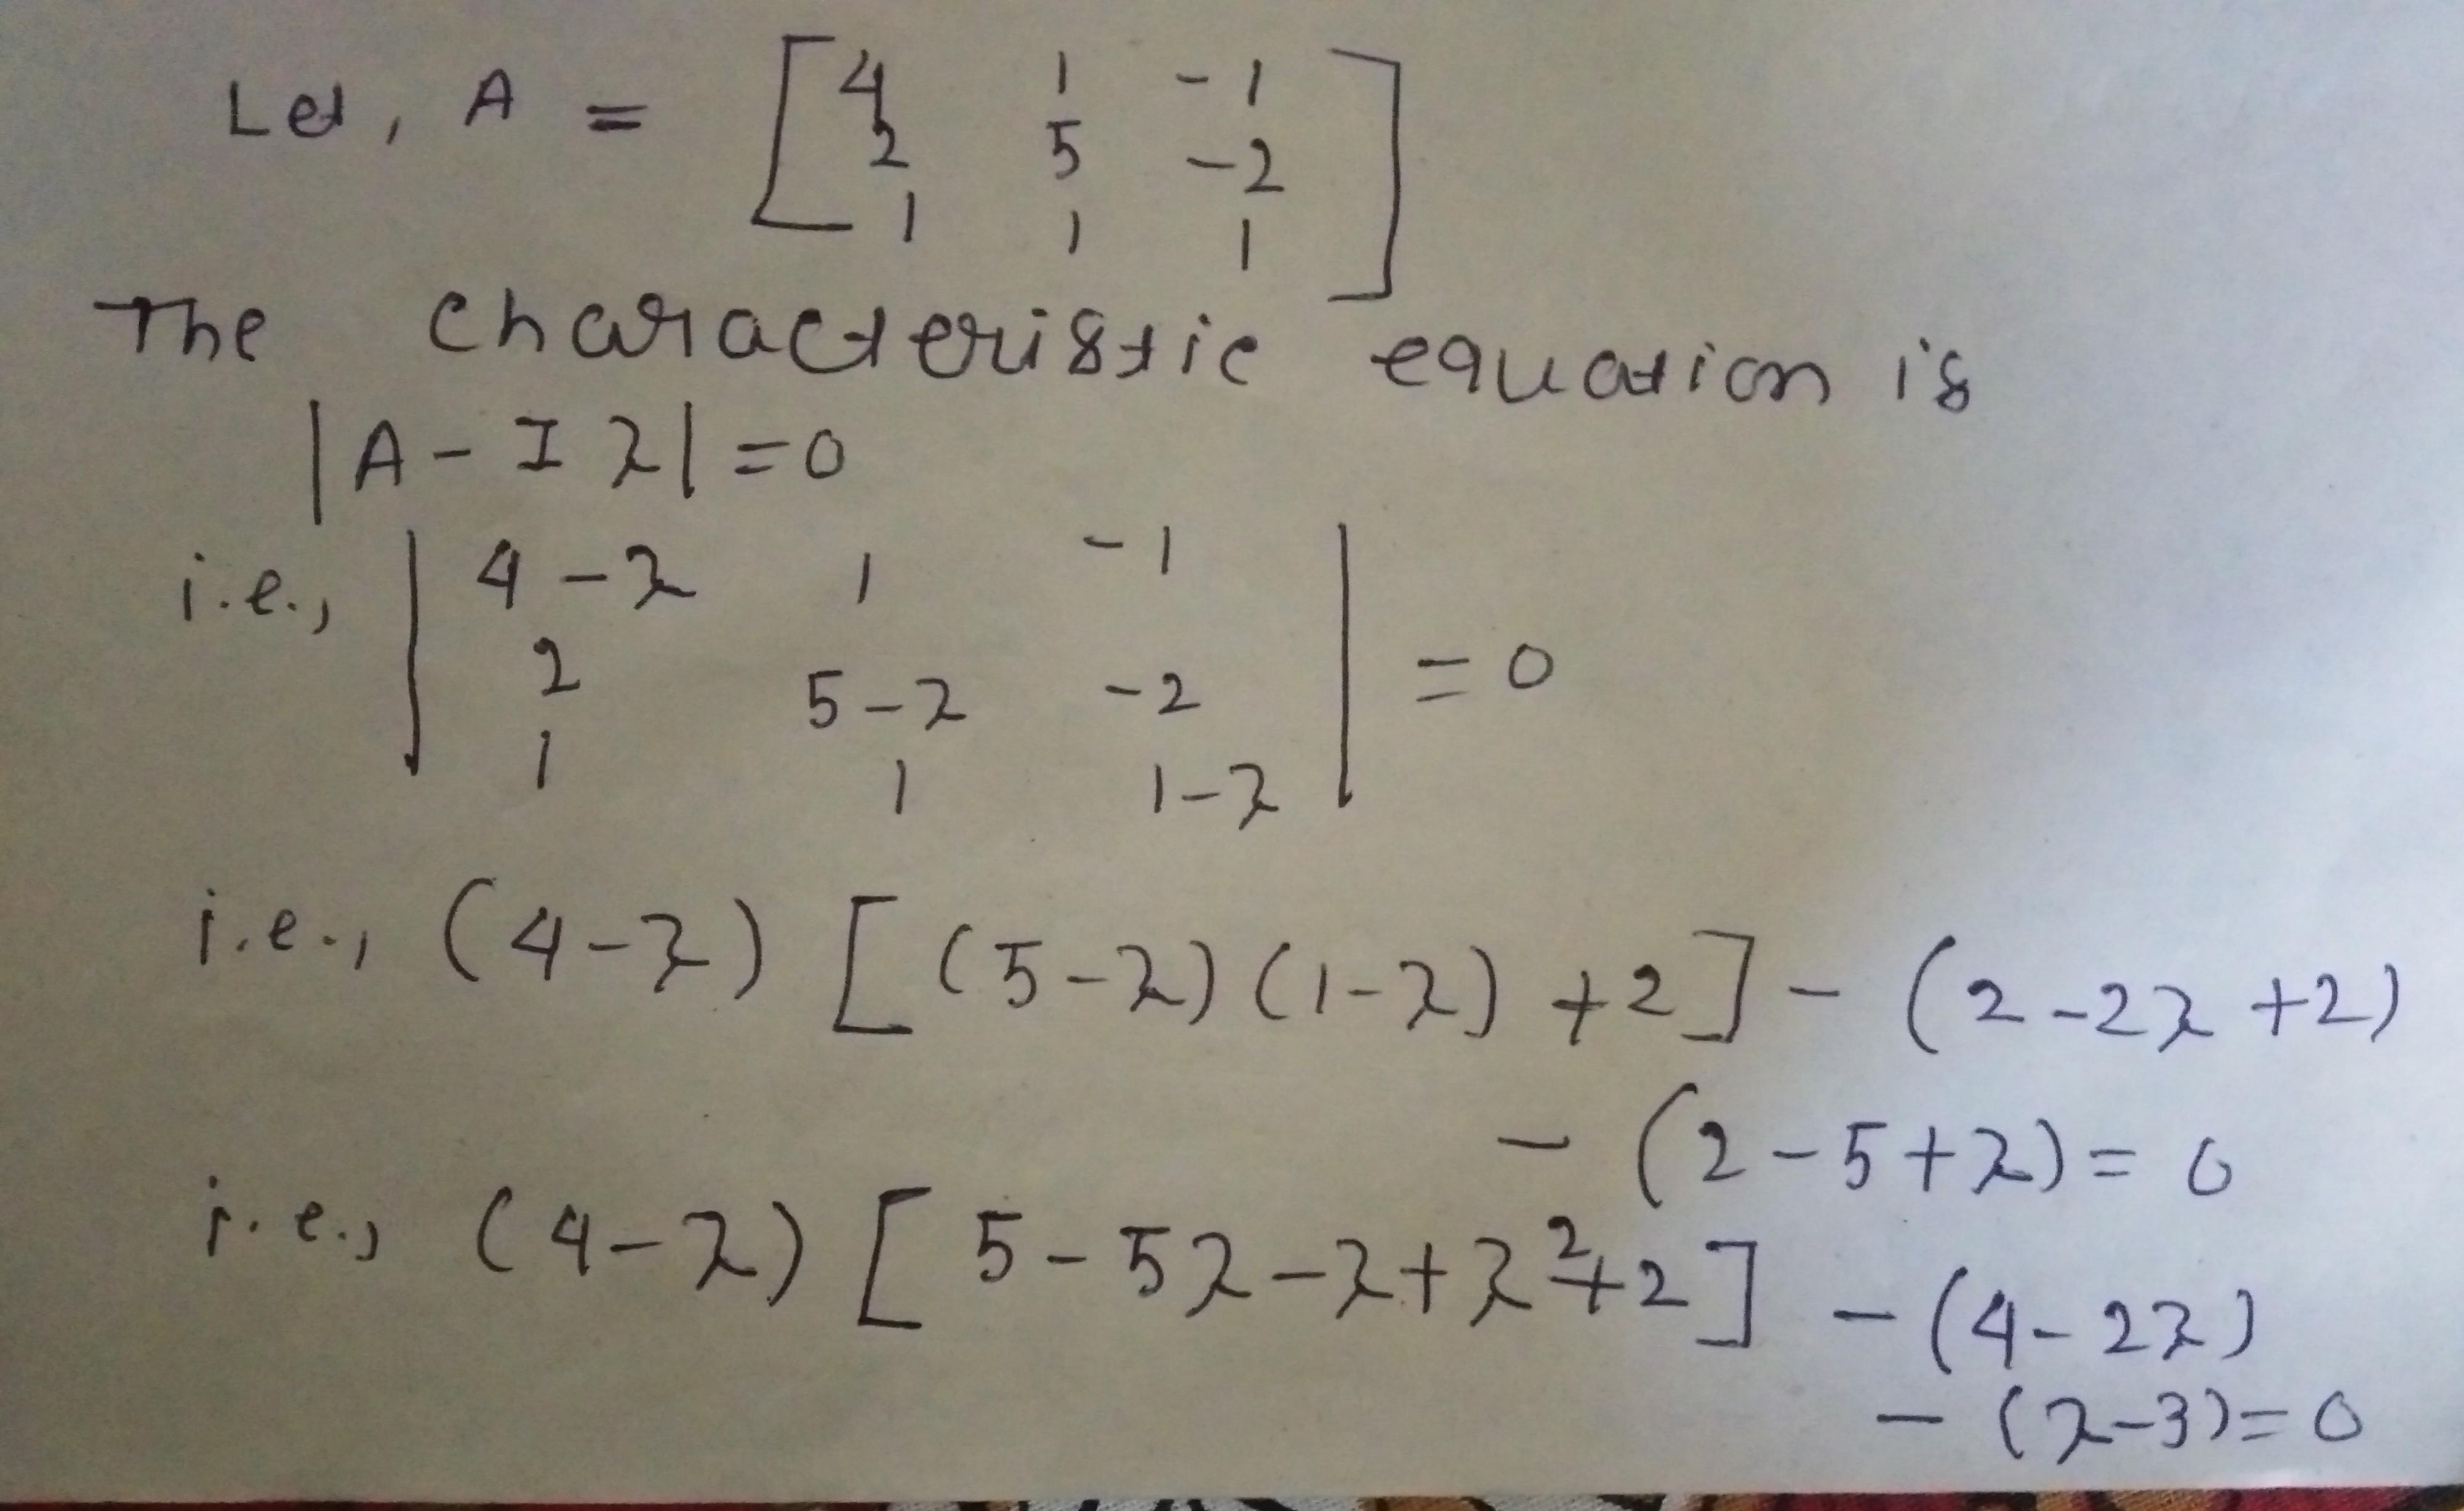 Let, A = [ 4 1 -1
2 5 -2
1 1 1 ]
The characteristic equation is
|A - I λ| = 0
i.e., | 4-λ 1 -1
2 5-λ -2 | = 0
1 1 1-λ
i.e., (4-λ) [(5-λ)(1-λ) +2] - (2-2λ+2)
- (2-5+λ) = 0
i.e., (4-λ) [5-5λ-λ+λ²+2] - (4-2λ)
- (λ-3) = 0